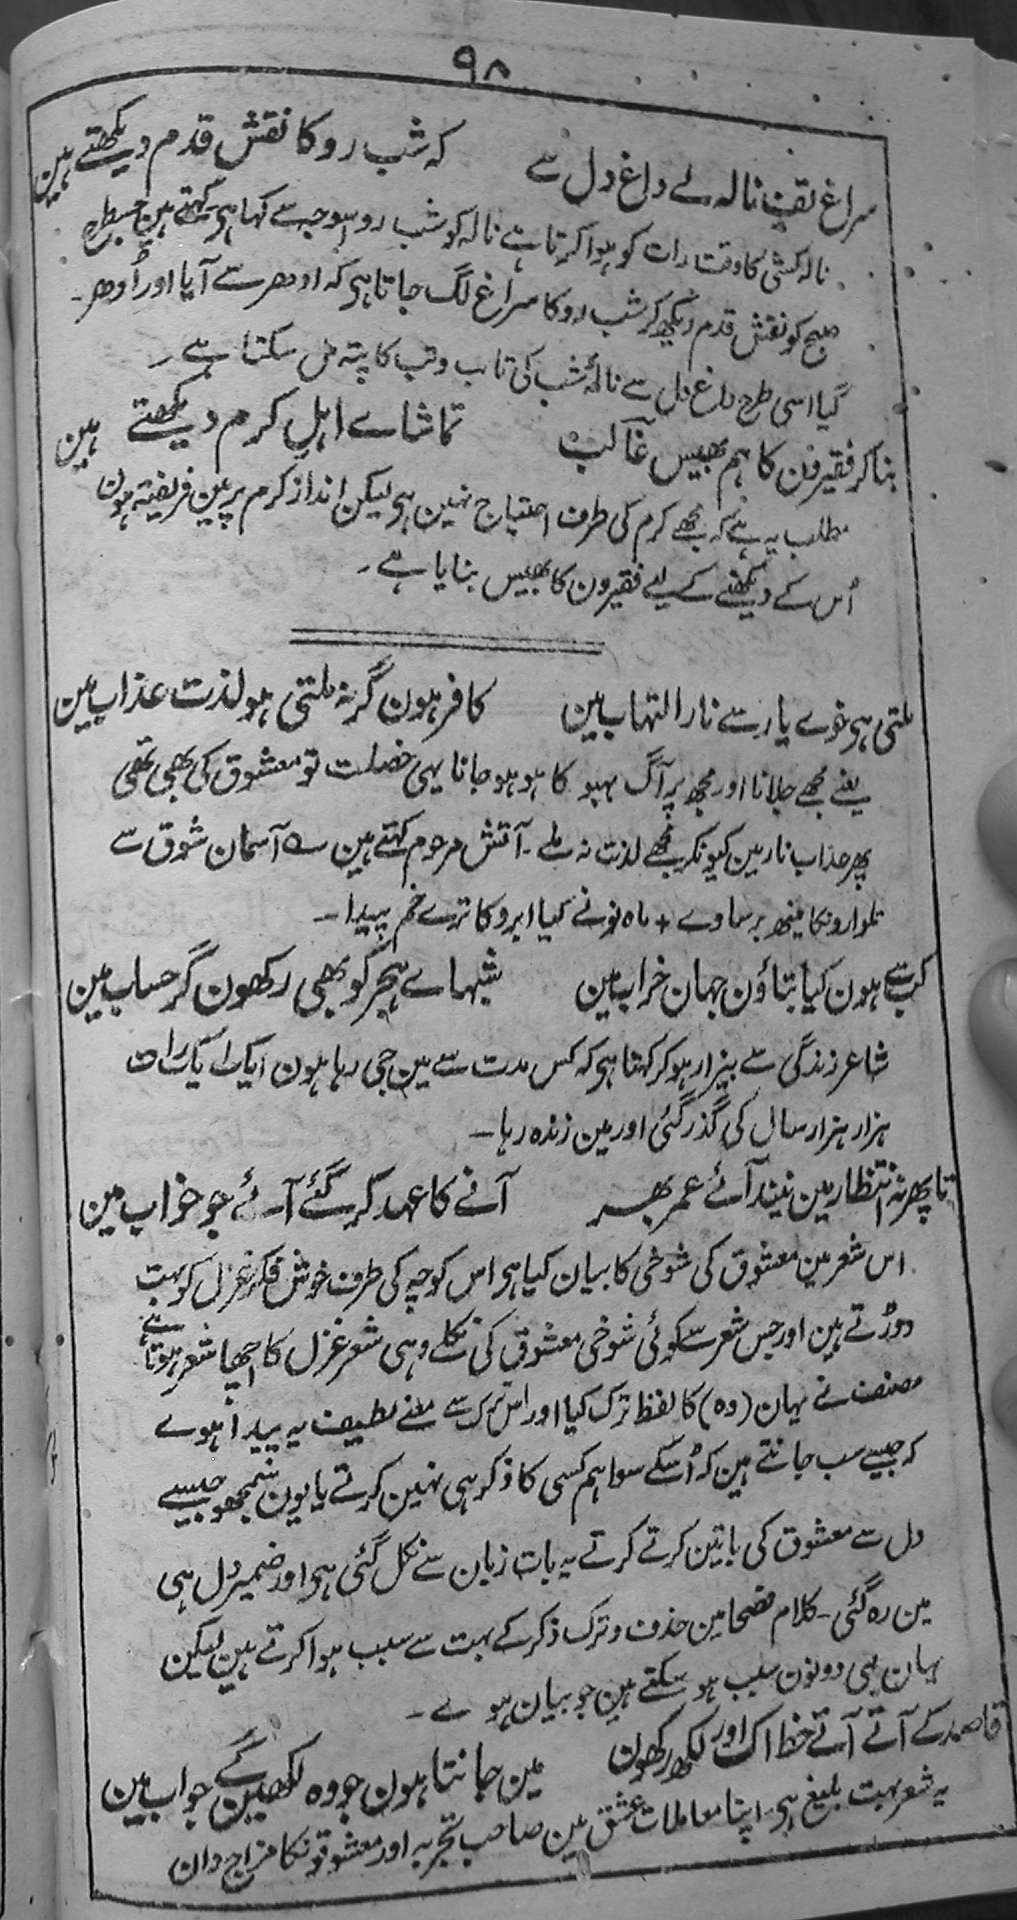 ۹۸
سراغ تفِ نالہ لے داغِ دل سے کہ شب رو کا نقش قدم دیکھتے ہین
نالہ کشی کا وقت رات کو ہوا کرتا ہے نالہ کو شب رو اسوجہ سے کہا ہی کہتے ہین جسطرح
صبح کو نقش قدم دیکھ کر شب رو کا سراغ لگ جاتا ہی کہ اودھر سے آیا اور اُودھر۔
گیا اسی طرح داغ دل سے نالۂ شب کی تاب و تب کا پتہ مل سکتا ہے۔
بنا کر فقیرون کا ہم بھیس غالب تماشاے اہلِ کرم دیکھتے ہین
مطلب یہ ہے کہ مجھے کرم کی طرف احتیاج نہین ہی لیکن انداز کرم پر مین فریفتہ ہون
اُس کے دیکھنے کے لیے فقیرون کا بھیس بنایا ہے۔
ملتی ہی خوے یار سے نار التہاب مین کافر ہون گر نہ ملتی ہو لذت عذاب مین
یعنے مجھے جلانا اور مجھ پر آگ بہبو کا ہو ہو جانا یہی خصلت تو معشوق کی بھی تھی
پھر عذاب نار مین کیونکر مجھے لذت نہ ملے۔ آتش مرحوم کہتے ہین ؎ آسمان شوق سے
تلوارونکا مینھ برساوے + ماہ نو نے کیا ابرو کا ترے خم پیدا۔
کب سے ہون کیا بتاؤن جہان خراب مین شبہاے ہجر کو بھی رکھون گر حساب مین
شاعر زندگی سے بیزار ہو کر کہتا ہی کہ کس مدت سے مین جی رہا ہون ایک ایک رات
ہزار ہزار سال کی گذر گئی اور مین زندہ رہا۔
تا پھر نہ انتظار مین نیند آئے عمر بھر آنے کا عہد کر گئے آئے جو خواب مین
اس شعر مین معشوق کی شوخی کا بیان کیا ہی اس کوچہ کی طرف خوش فکر غزل گو بہت
دوڑتے ہین اور جس شعر سے کوئی شوخی معشوق کی نکلے وہی شعر غزل کا اچھا شعر ہوتا ہے
مصنف نے یہان (وہ) کا لفظ ترک کیا اور اس ترک سے معنے لطیف یہ پیدا ہوے
کہ جیسے سب جانتے ہین کہ اُسکے سوا ہم کسی کا ذکر ہی نہین کرتے یا یون سمجھو جیسے
دل سے معشوق کی باتین کرتے کرتے یہ بات زبان سے نکل گئی ہی اور ضمیر دل ہی
مین رہ گئی۔ کلام فصحا مین حذف و ترک ذکر کے بہت سے سبب ہوا کرتے ہین لیکن
یہان یہی دونون سبب ہو سکتے ہین جو بیان ہوے۔
قاصد کے آتے آتے خط اک اور لکھ رکھون مین جانتا ہون جو وہ لکھین گے جواب مین
یہ شعر بہت بلیغ ہی۔ اپنا معاملات عشق مین صاحب تجربہ اور معشوقونکا مزاج دان